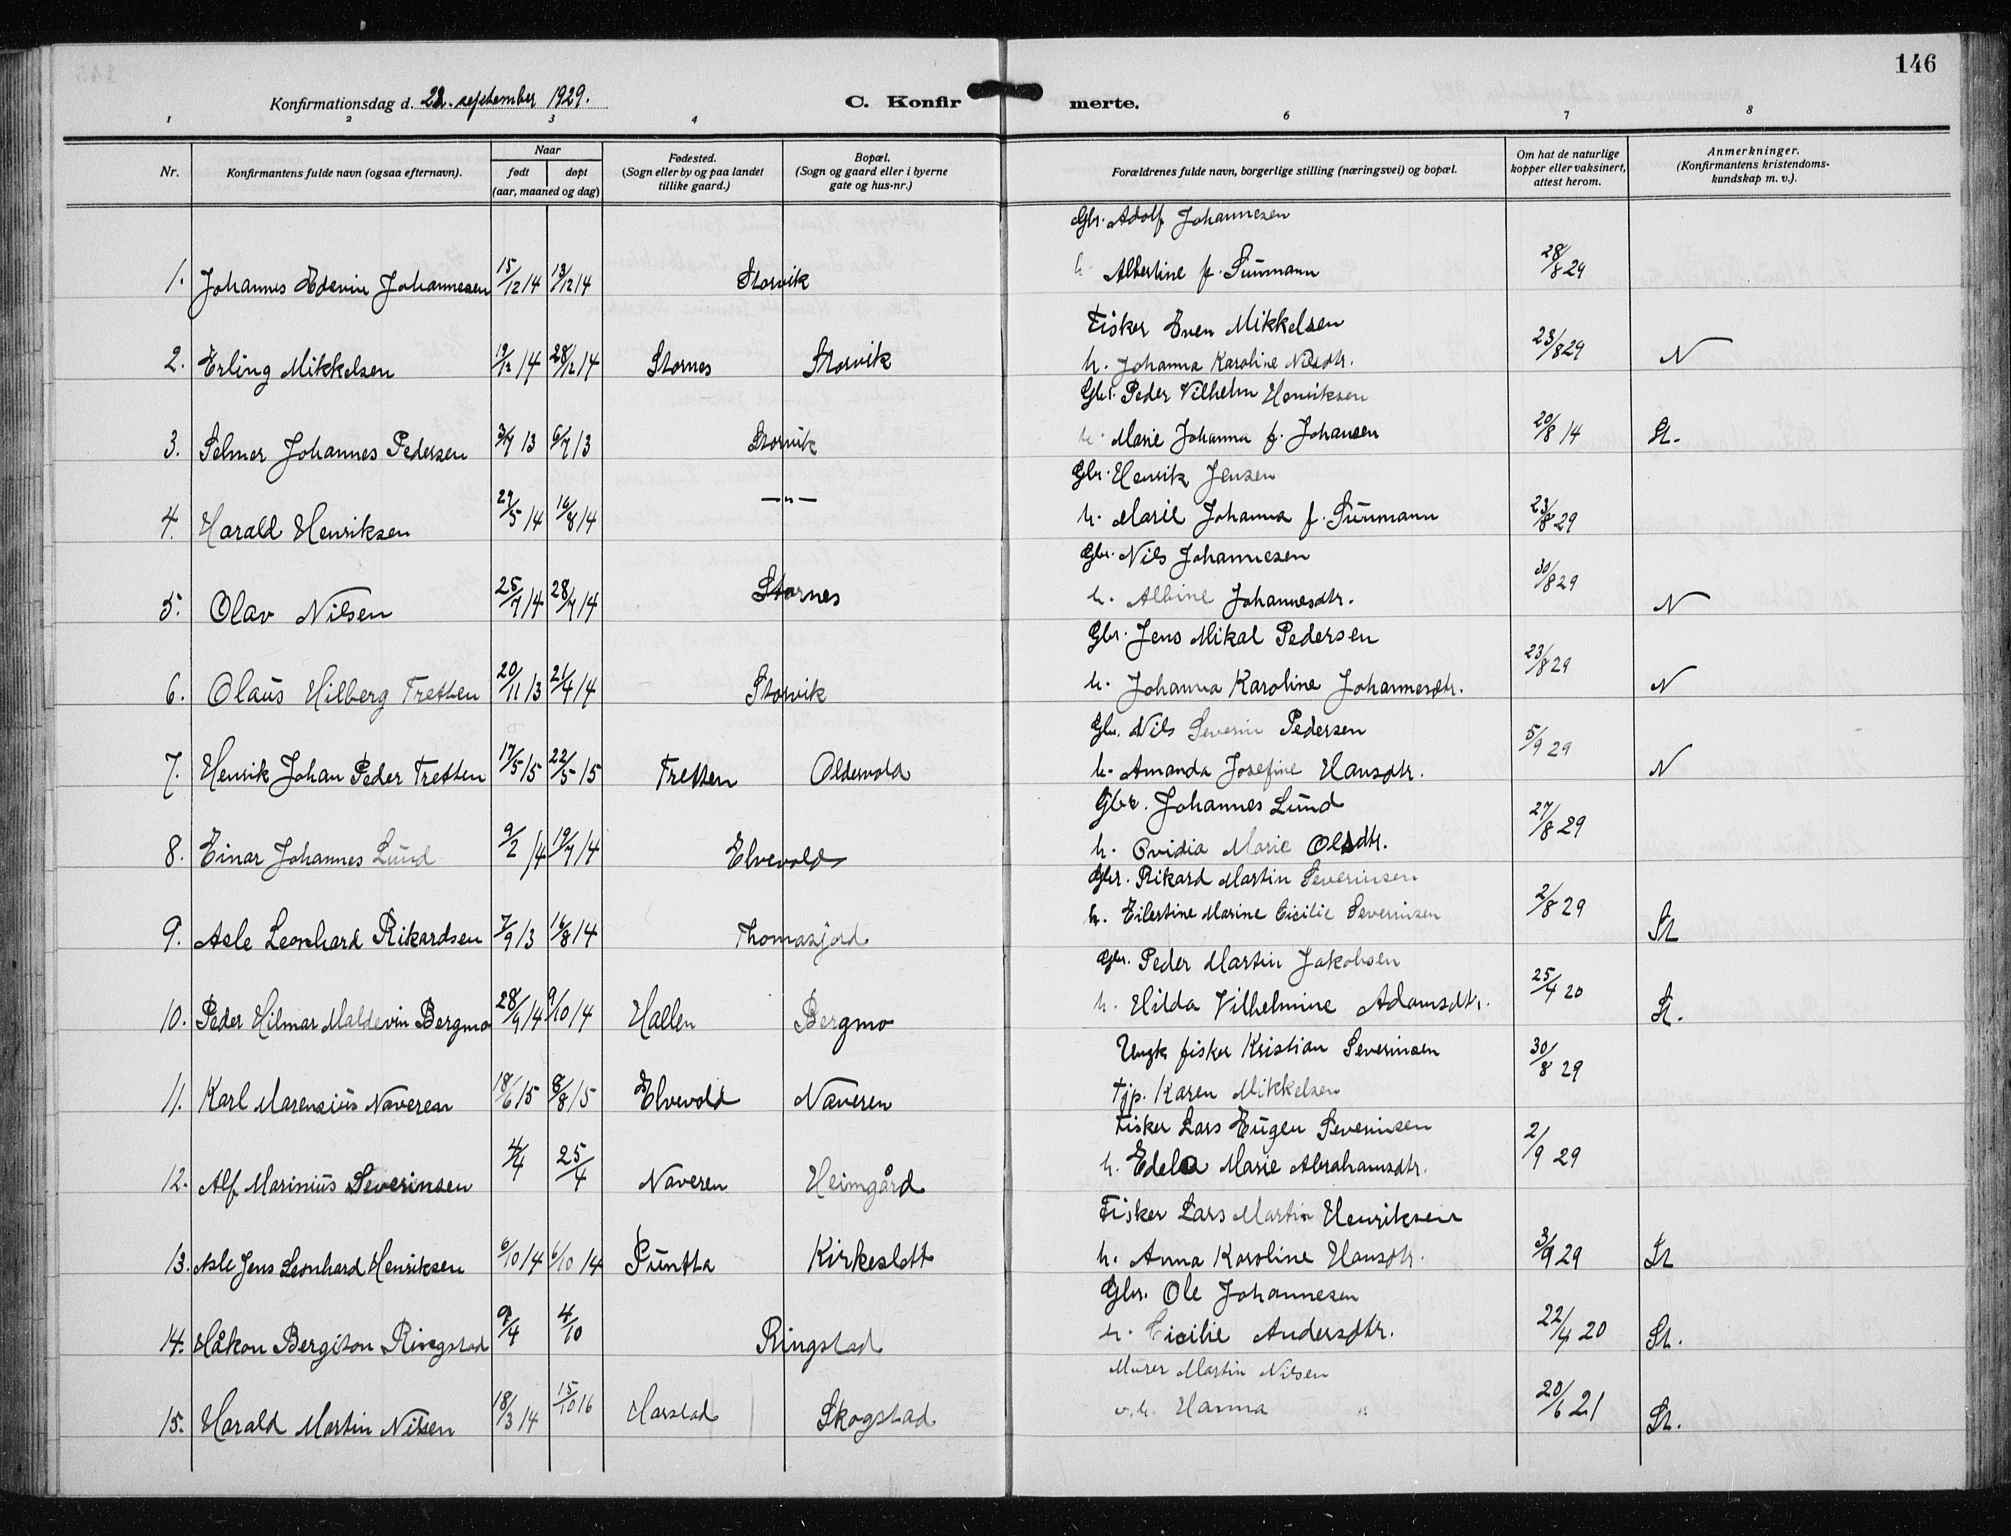 146
Konfirmationsdag d. 22. september 1929.
C. Konfirmerte.
1 2 3 4 6 7 8
Nr.
Konfirmantens fulde navn (ogsaa efternavn).
Naar
født døpt
(aar, maaned og dag)
Fødested.
(Sogn eller by og paa landet
tillike gaard.)
Bopæl.
(Sogn og gaard eller i byerne
gate og hus-nr.)
Forældrenes fulde navn, borgerlige stilling (næringsvei) og bopæl.
Om hat de naturlige
kopper eller vaksinert,
attest herom.
Anmerkninger.
(Konfirmantens kristendoms-
kundskap m. v.).
Gbr. Adolf Johannesen
1. Johannes Edevin Johannesen 15/12 14 19/12 14 Storvik h. Albertine f. Suumann 28/8 29
Fisker Even Mikkelsen
2. Erling Mikkelsen 19/12 14 28/12 14 Stornes Storvik h. Johanna Karoline Nilsdtr. 23/8 29 N
Gbr. Peder Vilhelm Henriksen
3. Selmer Johannes Pedersen 3/7 13 6/7 13 Storvik h. Marie Johanna f. Johansen 20/8 14 St.
Gbr. Henrik Jensen
4. Harald Henriksen 29/5 14 16/8 14 —"— h. Marie Johanna f. Suumann 23/8 29
Gbr. Nils Johannesen
5. Olav Nilsen 25/7 14 28/7 14 Stornes h. Albine Johannesdtr. 30/8 29 N
Gbr. Jens Mikal Pedersen
6. Olaus Hilberg Tretten 20/11 13 21/4 14 Storvik h. Johanna Karoline Johannesdtr. 23/8 29 N
Gbr. Nils Severin Pedersen
7. Henrik Johan Peder Tretten 17/5 15 22/5 15 Tretten Oldervold h. Amanda Josefine Hansdtr. 5/9 29 N
Gbr. Johannes Lund
8. Einar Johannes Lund 9/2 14 19/7 14 Elvevold h. Ovidia Marie Olsdtr. 27/8 29
Gbr. Rikard Martin Severinsen
9. Asle Leonhard Rikardsen 7/9 13 16/8 14 Thomasjord h. Eilertine Marine Cicilie Severinsen 2/8 29 St
Gbr. Peder Martin Jakobsen
10. Peder Hilmar Maldevin Bergmo 28/9 14 9/10 14 Hallen Bergmo h. Hilda Vilhelmine Adamsdtr. 25/4 20 St.
Ungk. fisker Kristian Severinsen
11. Karl Marensius Naveren 18/6 15 8/8 15 Elvevold Naveren Tjp. Karen Mikkelsen 30/8 29
Fisker Lars Eugen Severinsen
12. Alf Marinius Severinsen 4/4 25/4 Naveren Heimgård h. Edela Marie Abrahamsdtr. 2/9 29
Fisker Lars Martin Henriksen
13. Asle Jens Leonhard Henriksen 6/10 14 6/10 14 Puntta Kirkeslett h. Anna Karoline Hansdtr. 3/9 29 St
Gbr. Ole Johannesen
14. Håkon Bergiton Ringstad 9/4 4/10 Ringstad h. Cicilie Andersdtr. 22/4 20 St.
Murer Martin Nilsen
15. Harald Martin Nilsen 18/3 14 15/10 16 Harstad Skogstad o.h. Hanna " 20/6 21 St.